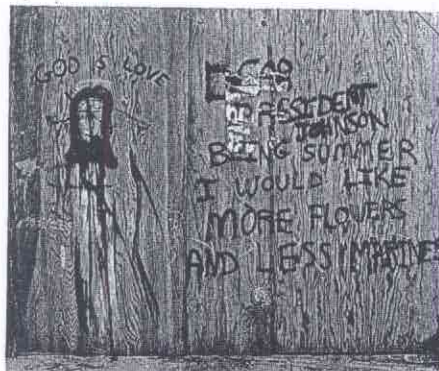 GOD IS LOVE
PRESIDENT
JOHNSON
BEING SUMMER
I WOULD LIKE
MORE FLOWERS
AND LESS MARINES